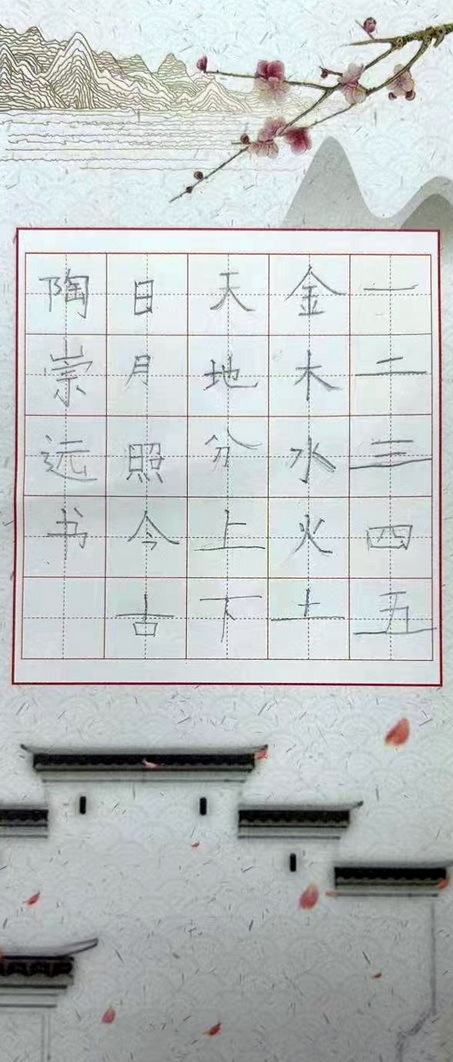 一二三四五
金木水火土
天地分上下
日月照今古
陶崇远书